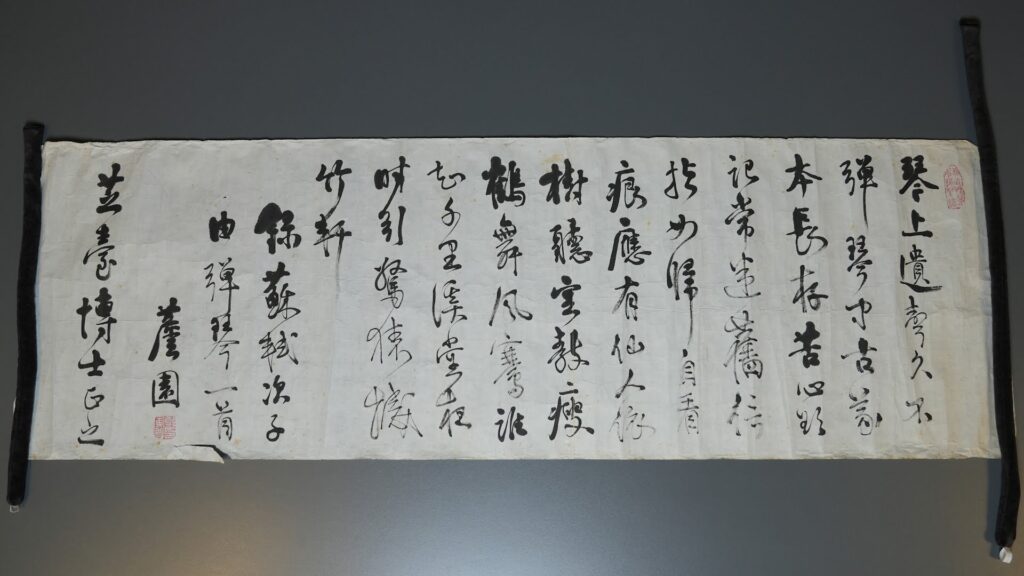 琴上遺聲久不
彈琴中古義
本長存苦心欲
記常迷舊信
指如歸自著
痕應有仙人依
樹聽空教瘦
鶴舞風騫誰
知千里溪堂夜
時引驚猿撼
竹軒
錄蘇軾次子
由彈琴一首
園
芝臺博士正之